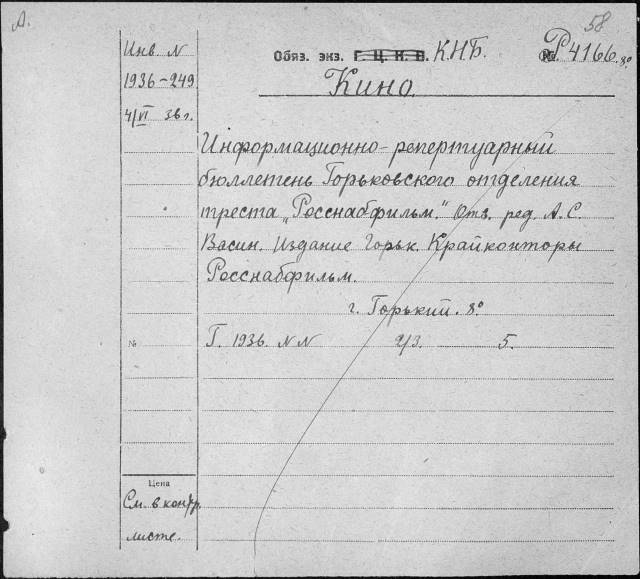 А.
58
Инв. N
1936-249
4/VI 36 г.
Обяз. экз. Г. Ц. К. П. КНБ.
№ Р4166. 8º
Кино.
Информационно-репертуарный
бюллетень Горьковского отделения
треста „Росснабфильм." Отв. ред. А. С.
Васин. Издание Горьк. Крайконторы
Росснабфильм.
г. Горький. 8º
№ Г. 1936. N N 2/3. 5.
Цена
См. в контр.
листе.